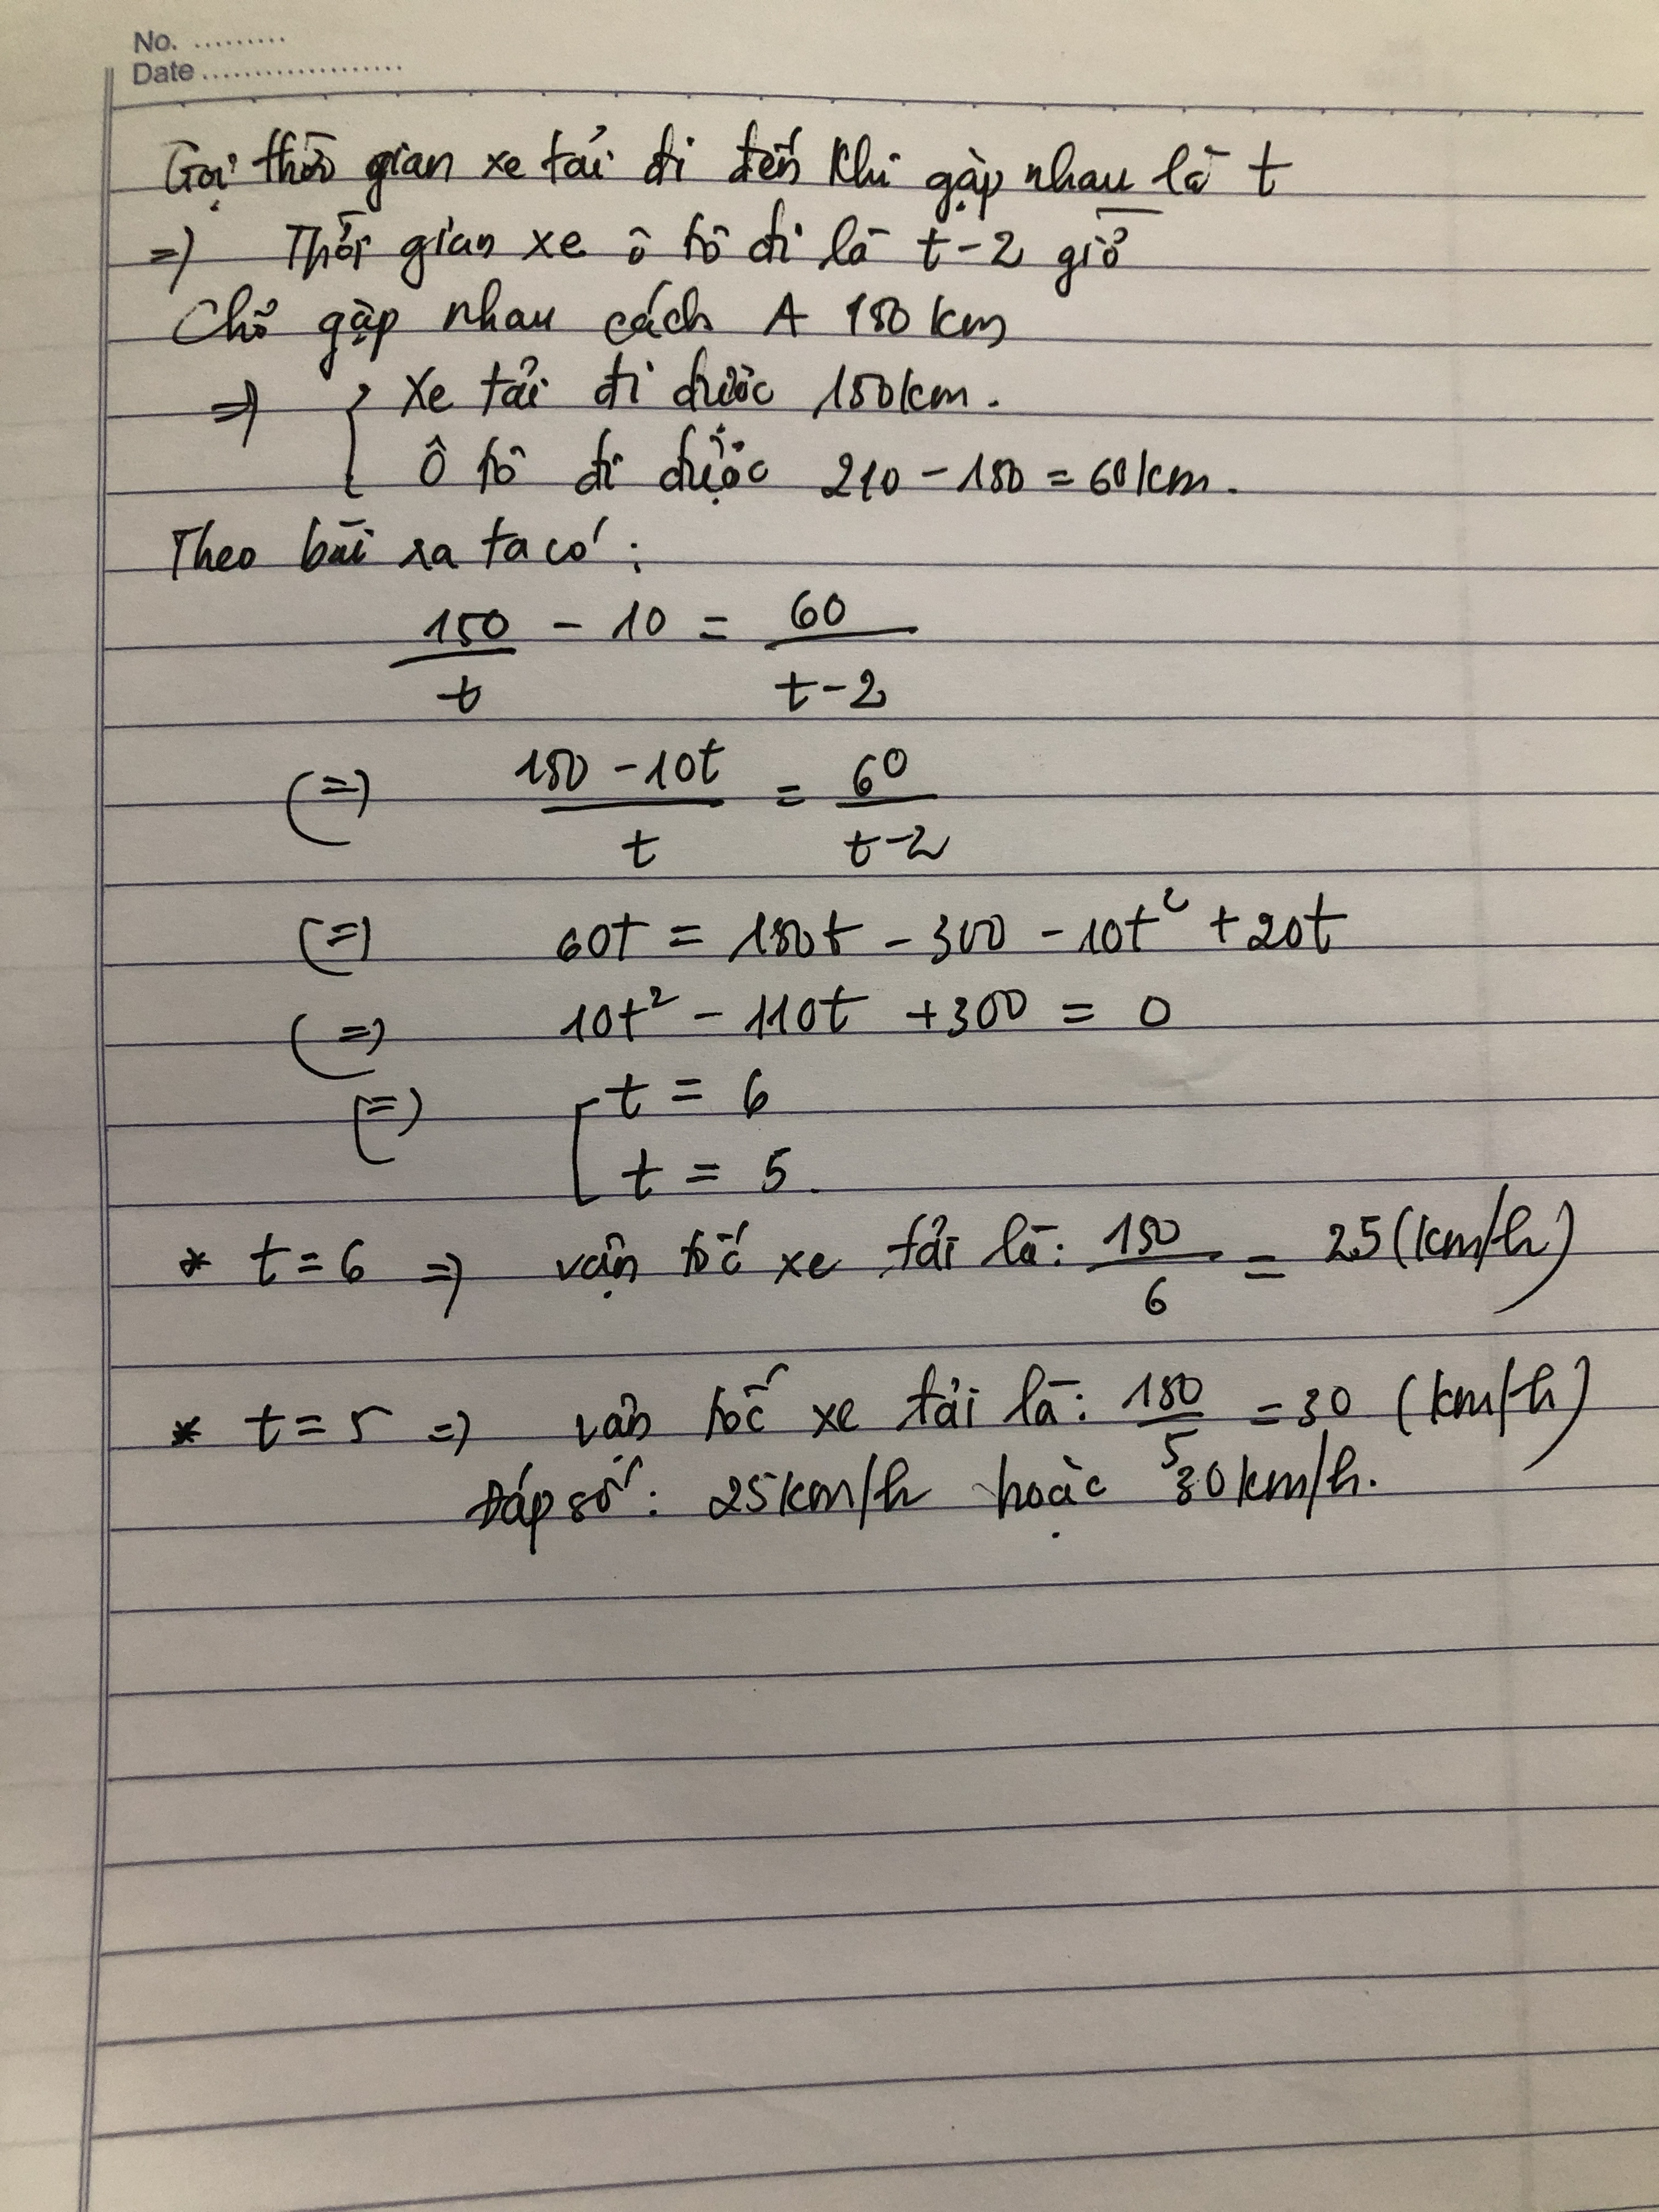 No. .........
Date ....................
Gọi thời gian xe tải đi đến khi gặp nhau là t
=> Thời gian xe ô tô đi là t-2 giờ
Chỗ gặp nhau cách A 150 km
=> { Xe tải đi được 150km.
Ô tô đi được 210 - 150 = 60km.
Theo bài ra ta có :
150/t - 10 = 60/(t-2)
(=) (150 - 10t)/t = 60/(t-2)
(=) 60t = 150t - 300 - 10t² + 20t
(=) 10t² - 110t + 300 = 0
(=) [ t = 6
t = 5.
* t = 6 => vận tốc xe tải là: 150/6 = 25 (km/h)
* t = 5 => vận tốc xe tải là: 150/5 = 30 (km/h)
Đáp số: 25km/h hoặc 30km/h.